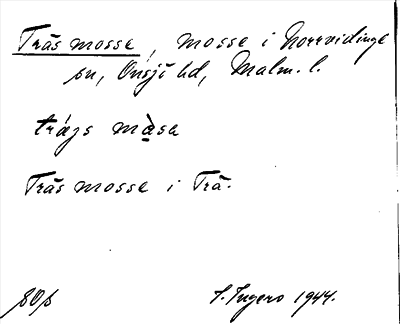 Träs mosse, mosse i Norrvidinge
sn, Onsjö hd, Malm. l.
trágs màsa
Träs mosse i Trä.
S. Ingers 1944.